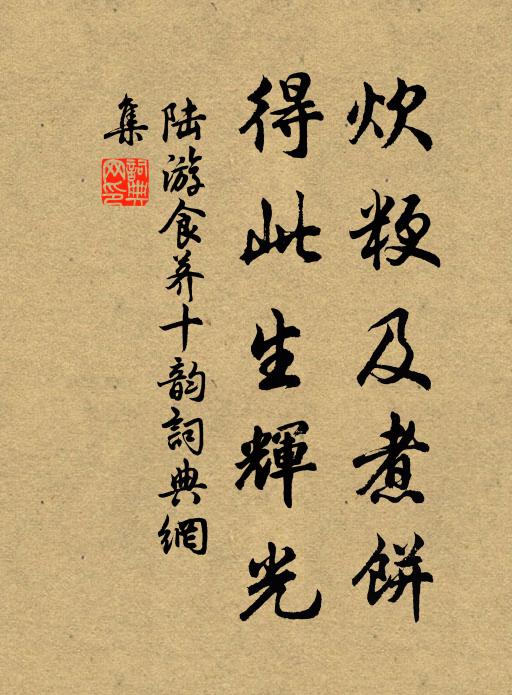 炊粳及煮餅
得此生輝光
陆游食荠十韵詞典網
集
詞典
网印